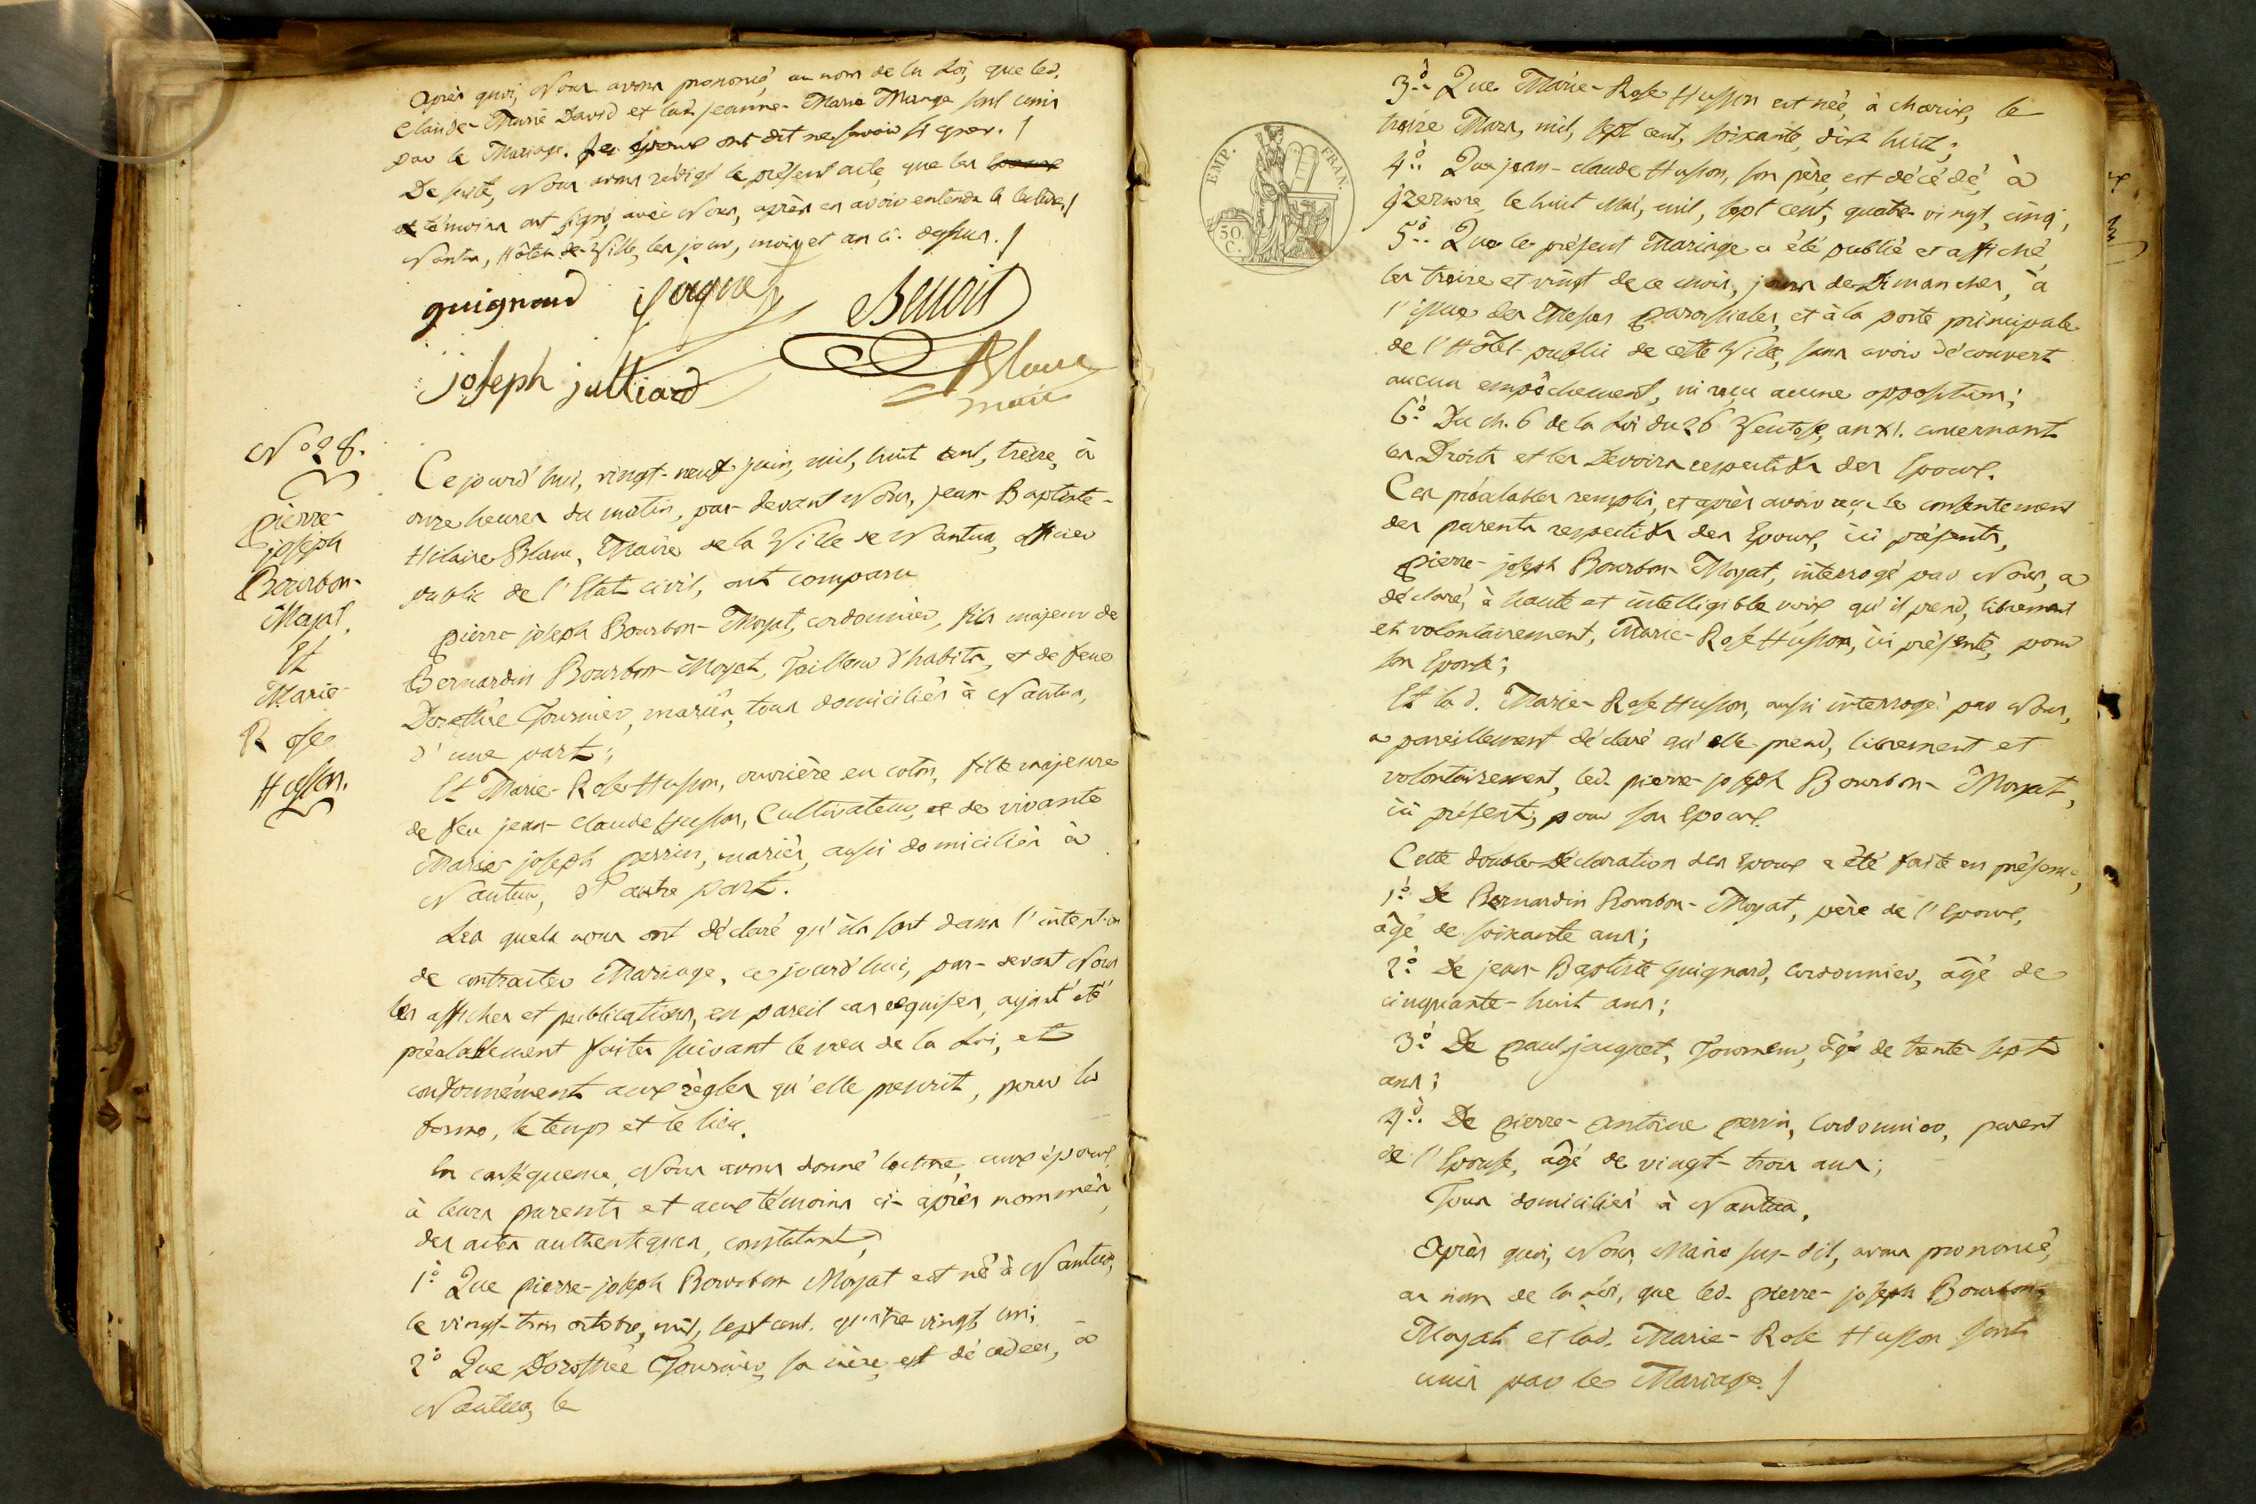 Après quoi, Nous avons prononcé, au nom de la Loi, que led.
Claude-Marie David et lad. Jeanne-Marie Mange sont unis
par le Mariage. Les Epoux ont dit ne savoir signer. /
De suite, Nous avons rédigé le présent acte, que les
et témoins ont signé, avec Nous, après en avoir entendu la lecture. /
Nantua, Hôtel-de-Ville, les jour, mois et an ci-dessus. /
guignard Jaquet Benoit
joseph julliard Blanc
maire
N.º 28.
pierre-
joseph
Bourbon-
Moyat,
Et
Marie-
Rose
Husson.
Cejourd'hui, vingt-neuf juin, mil, huit cent, treize, à
onze heures du matin, par-devant Nous, jean-Baptiste-
Hilaire Blanc, Maire de la Ville de Nantua, officier
public de l'Etat civil, ont comparu
pierre-joseph Bourbon-Moyat, cordonnier, fils majeur de
Bernardin Bourbon-Moyat, Tailleur d'habits, et de feue
Dorothée Tournier, mariés, tous domiciliés à Nantua,
d'une part;
Et Marie-Rose Husson, ouvrière en coton, fille majeure
de feu jean-claude Husson, Cultivateur, et de vivante
Marie-joseph perrin, mariés, aussi domiciliés à
Nantua, d'autre part.
Les quels nous ont déclaré qu'ils sont dans l'intention
de contracter Mariage, cejourd'hui, par-devant Nous
les affiches et publications, en pareil cas requises, ayant été
préalablement faites suivant le vœu de la Loi, et
conformément aux règles qu'elle prescrit, pour la
forme, le temps et le lieu.
En conséquence, Nous avons donné lecture, aux époux,
à leurs parents et aux témoins ci-après nommés,
des actes authentiques, constatant,
1.º Que pierre-joseph Bourbon-Moyat est né à Nantua,
le vingt-trois octobre, mil, sept cent, quatre vingt un;
2.º Que Dorothée Tournier, sa mère, est décédée, à
Nantua, le
EMP. FRAN.
50
C.
3.º Que Marie-Rose Husson est née, à charix, le
treize Mars, mil, sept cent, soixante, dix huit;
4.º Que jean-claude Husson, son père, est décédé, à
jzernore, le huit Mai, mil, sept cent, quatre-vingt, cinq;
5.º Que le présent Mariage a été publié et affiché,
les treize et vingt de ce mois, jours de Dimanches, à
l'issue des Messes paroissiales, et à la porte principale
de l'Hôtel public de cette Ville, sans avoir découvert
aucun empêchement, ni reçu aucune opposition;
6.º Du ch. 6 de la Loi du 26 Ventose, an XI. concernant
les Droits et les Devoirs respectifs des Epoux.
Ces préalables remplis, et après avoir reçu le consentement
des parents respectifs des Epoux, ici présents,
pierre-joseph Bourbon-Moyat, interrogé par Nous, a
déclaré, à haute et intelligible voix qu'il prend, librement
et volontairement, Marie-Rose Husson, ici présente, pour
son Epouse;
Et lad. Marie-Rose Husson, aussi interrogé par Nous,
a pareillement déclaré qu'elle prend, librement et
volontairement, led. pierre-joseph Bourbon-Moyat,
ici présent, pour son Epoux.
Cette double Déclaration des Epoux a été faite en présence,
1.º De Bernardin Bourbon-Moyat, père de l'Epoux,
âgé de soixante ans;
2.º De jean-Baptiste Guignard, Cordonnier, âgé de
cinquante-huit ans;
3.º De paul jaquet, Tourneur, âgé de trente-sept
ans;
4.º De pierre-antoine perrin, Cordonnier, parent
de l'Epouse, âgé de vingt-trois ans;
Tous domiciliés à Nantua.
Après quoi, Nous, Maire sus-dit, avons prononcé,
au nom de la Loi, que led. pierre-joseph Bourbon-
Moyat et lad. Marie-Rose Husson sont
unis par le Mariage. /